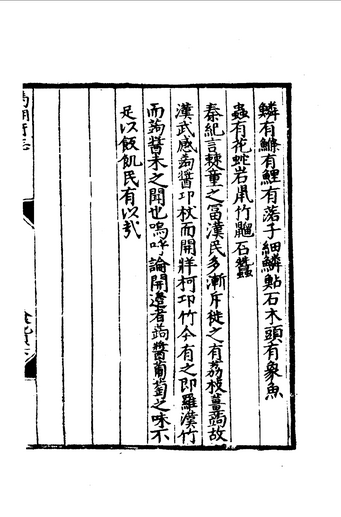 鱗有鰷有鯉有菭子細鱗鮎石木頭有象魚
蟲有花蛇岩鼡竹𪕍石蠶
秦紀言僰童之富漢民多漸斥徙之有荔枝薑蒟故
漢武感蒟醬卭杖而開牂柯卭竹今有之即羅漢竹
而蒟醬未之聞也嗚呼論開邊者蒟醬葡萄之味不
足以飯飢民有以哉